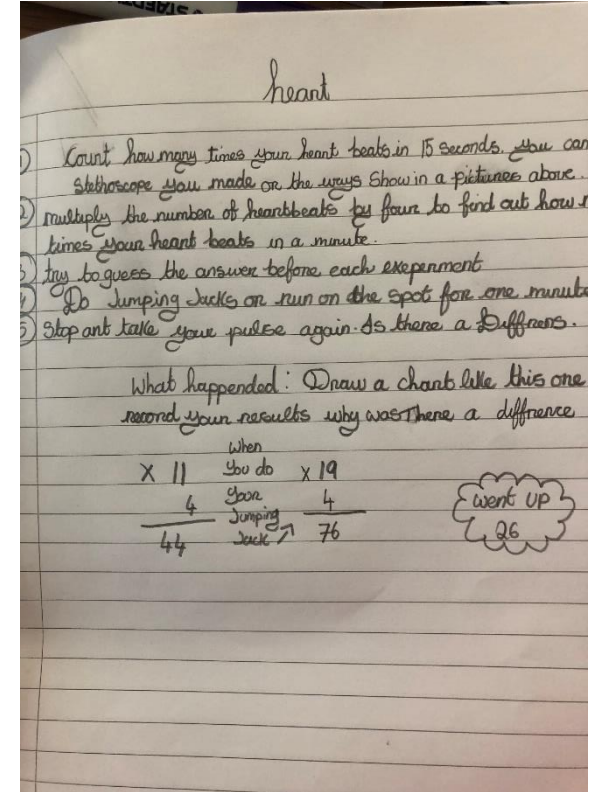 STAEDT
heart
1) Count how many times your heart beats in 15 seconds. You can
Stethoscope you made or the ways Show in a pictures above.
2) multiply the number of heartbeats by four to find out how
times your heart beats in a minute.
3 try to guess the answer before each exepenment
4 Do Jumping Jacks or run on the spot for one minute
5) Stop ant take your pulse again. Is there a Diffrers.
What happended: Draw a chart like this one
record your results why was There a diffrence
When
x 11 You do x 19
4 your 4
Jumping
44 Jack ↗ 76
went up
26